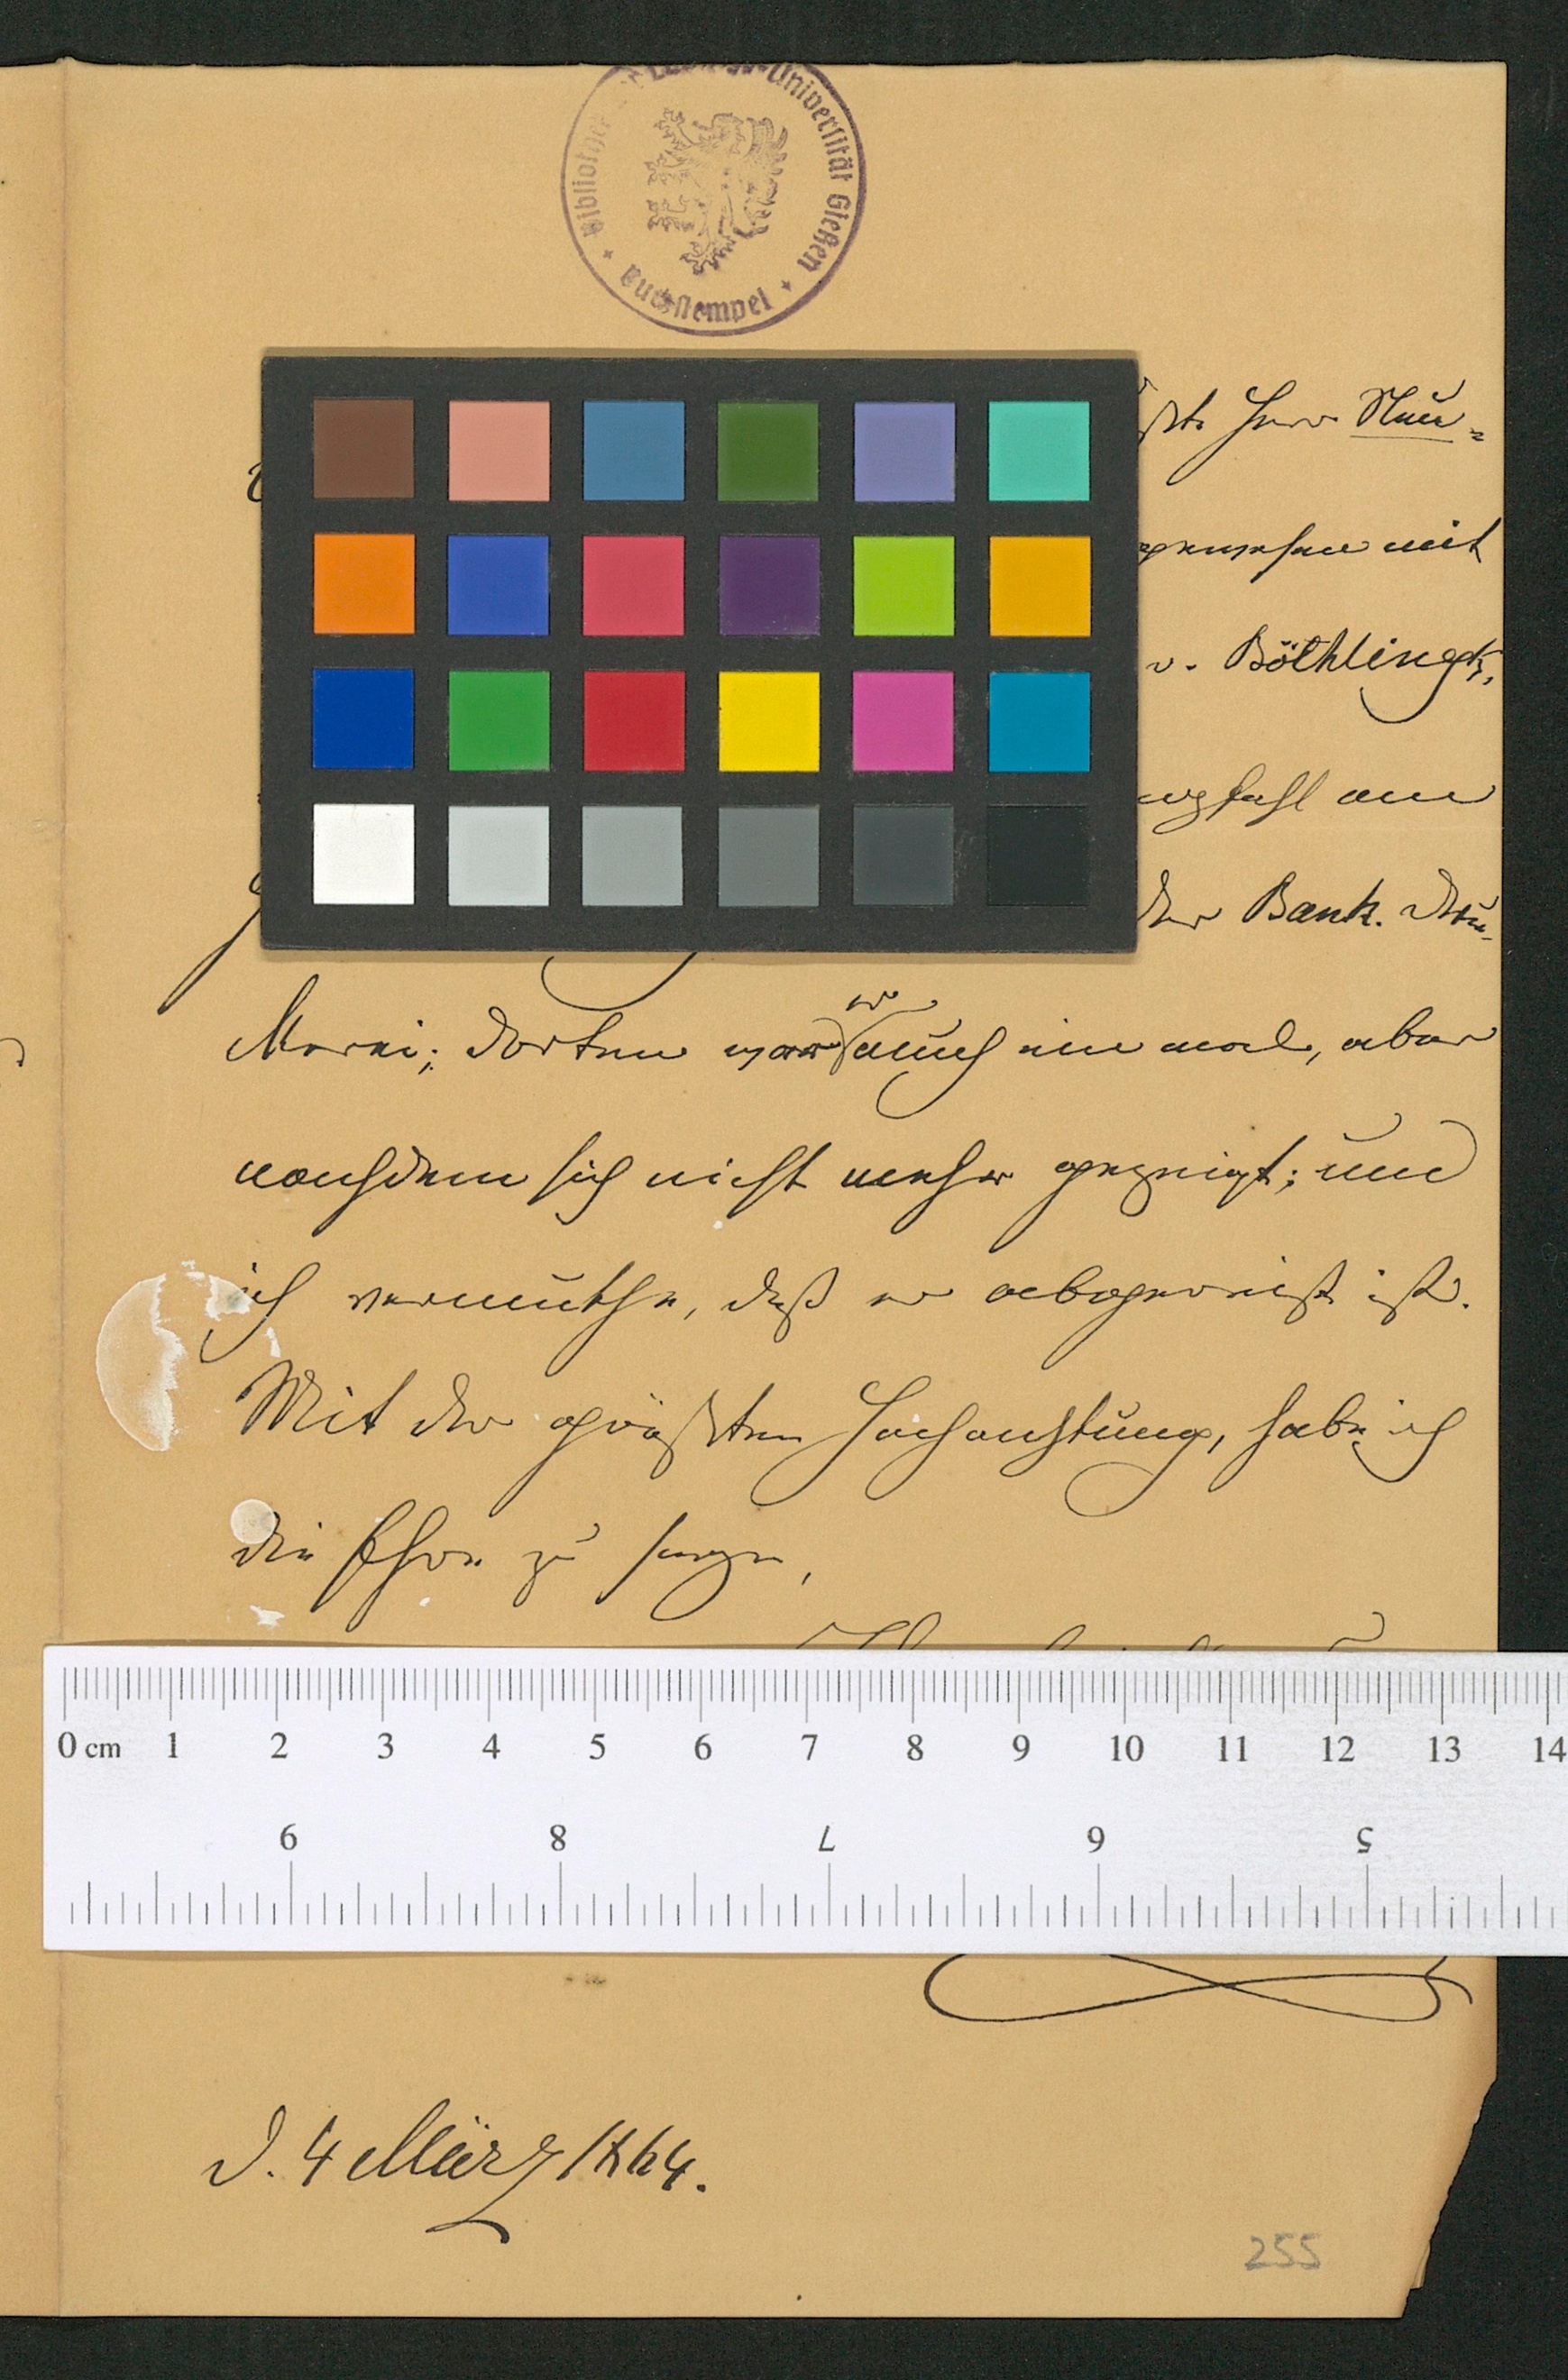 Bibliothek der Ludwigs-Universität Gießen
Buchstempel
Herr Nau=
gewesen mit
v. Böthlingk,
der Bank. Dru-
Morni; dorten war er auch ein mal, aber
nachdem sich nicht mehr gezeigt; und
ich vermuthe, daß er abgereist ist.
Mit der größten Hochachtung, habe ich
die Ehre zu seyn,
0 cm 1 2 3 4 5 6 7 8 9 10 11 12 13 14
9 8 7 6 5
d. 4 März 1864.
255